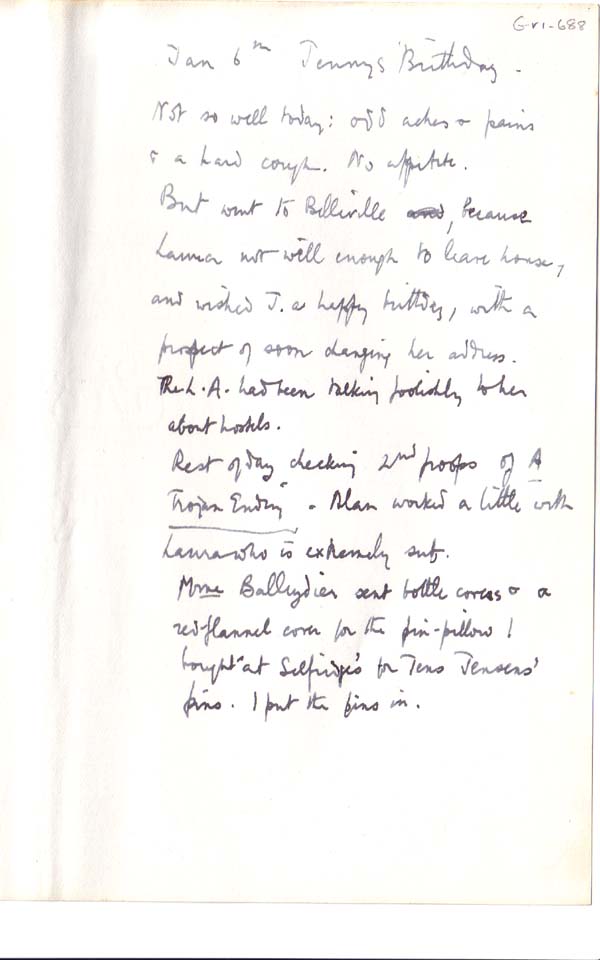 G-VI-688
Jan 6th Jennys Birthday.
Not so well today: odd aches & pains
& a hard cough. No appetite.
But went to , because
Laura not well enough to leave house,
and wished J. a happy birthday, with a
prospect of soon changing her address.
The L.A. had been talking foolishly to her
about hostels.
Rest of day checking 2nd proofs of A
Trojan Ending. Alan worked a little with
Laura who is extremely
Mme sent bottle covers & a
red-flannel cover for the pin-pillow I
bought at Selfridge's for Jensens'
pins. I put the pins in.